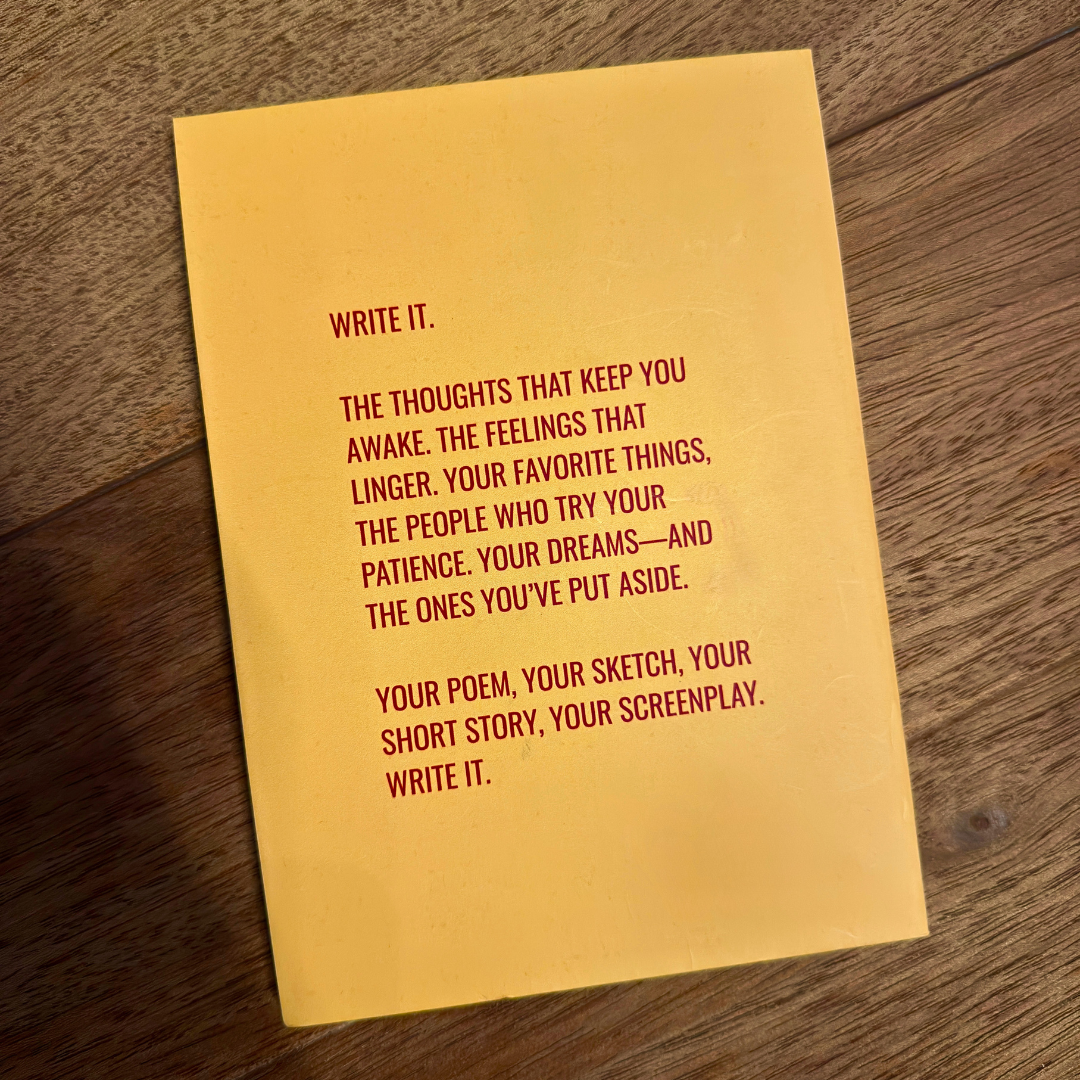 WRITE IT.
THE THOUGHTS THAT KEEP YOU
AWAKE. THE FEELINGS THAT
LINGER. YOUR FAVORITE THINGS,
THE PEOPLE WHO TRY YOUR
PATIENCE. YOUR DREAMS—AND
THE ONES YOU’VE PUT ASIDE.
YOUR POEM, YOUR SKETCH, YOUR
SHORT STORY, YOUR SCREENPLAY.
WRITE IT.